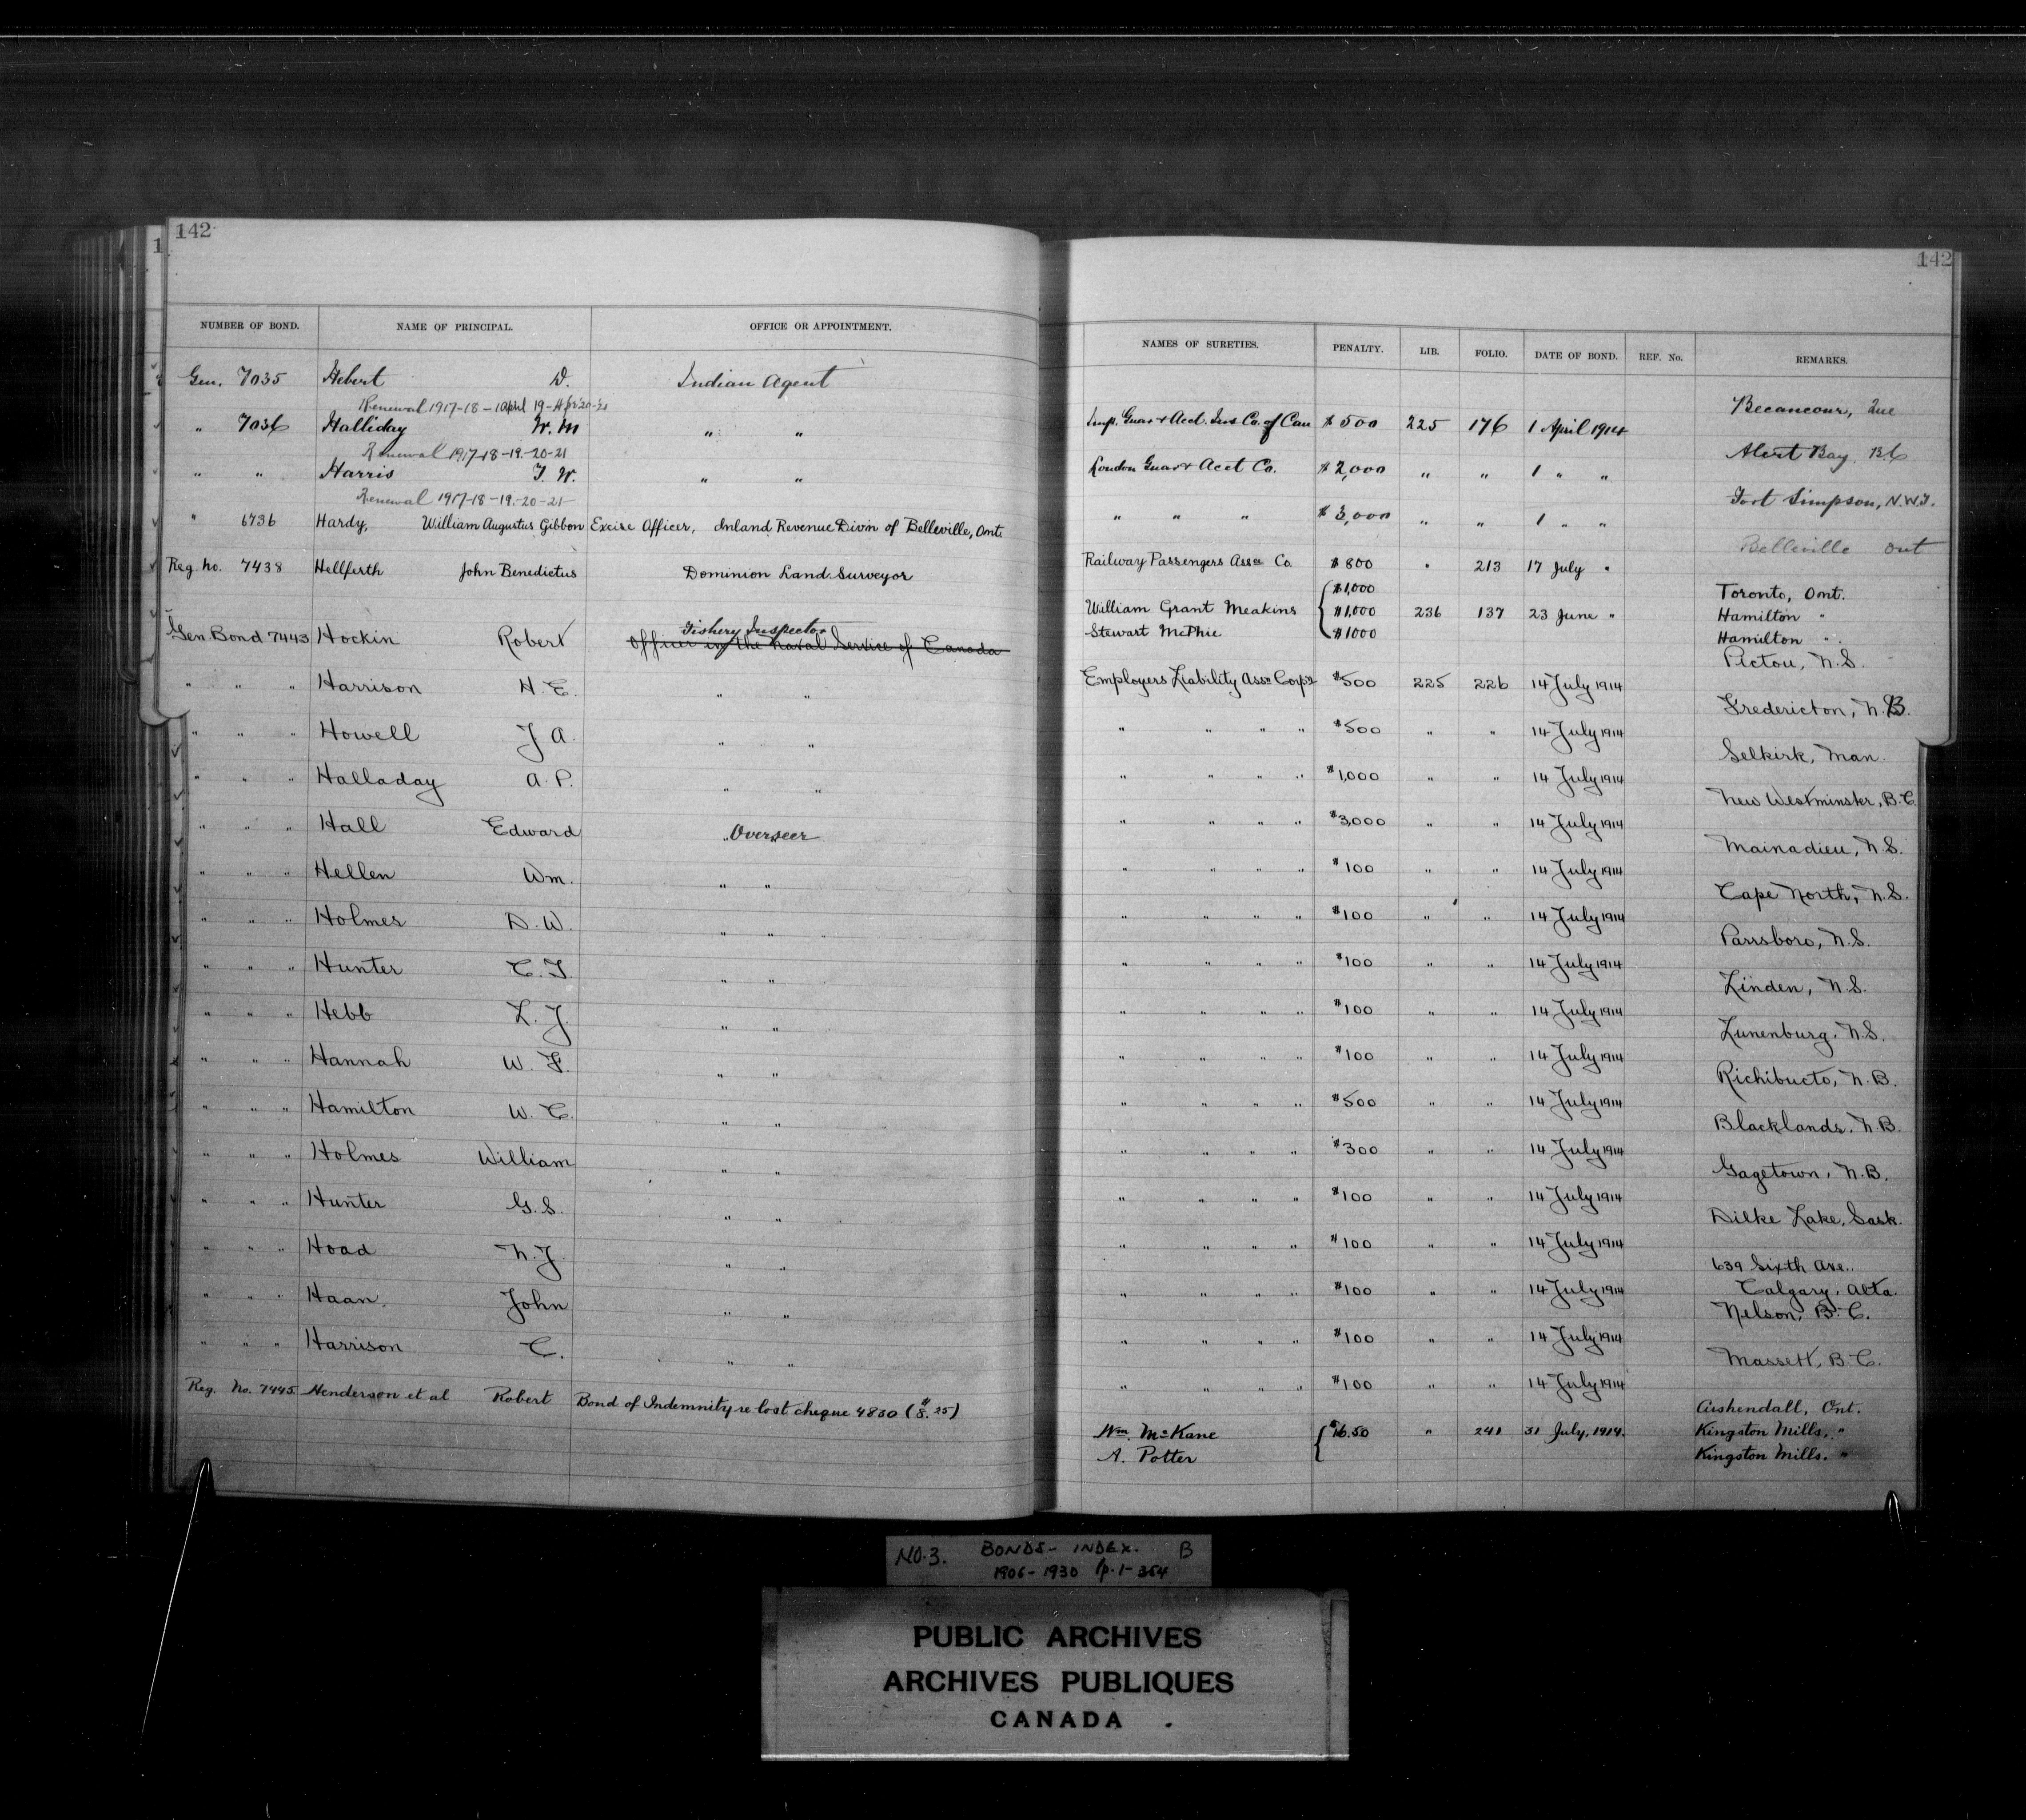 142
NUMBER OF BOND. NAME OF PRINCIPAL. OFFICE OR APPOINTMENT.
Gen. 7035 Hebert D. Indian Agent
Renewal 1917-18-1 April 19-Apr'20-'21
" 7036 Halliday W. M " "
Renewal 1917-18-19-20-21
" " Harris T. W. " "
Renewal 1917-18-19-20-21
" 6736 Hardy, William Augustus Gibbon Excise Officer, Inland Revenue Divn of Belleville, Ont.
Reg no. 7438 Hellferth John Benedictus Dominion Land Surveyor
Fishery Inspector
Gen. Bond 7443 Hockin Robert Officer in the Naval Service of Canada
" " " Harrison H. E. " "
" " " Howell J A. " "
" " " Halladay A. P. " "
" " " Hall Edward " Overseer
" " " Hellen Wm. " "
" " " Holmes D. W. " "
" " " Hunter C. T. " "
" " " Hebb L. J. " "
" " " Hannah W. F. " "
" " " Hamilton W. C. " "
" " " Holmes William " "
" " " Hunter G. S. " "
" " " Hoad N. J. " "
" " " Haan, John " "
" " " Harrison C. " "
Reg. No. 7445 Henderson et al Robert Bond of Indemnity re lost cheque 4830 ($8.25)
142
NAMES OF SURETIES. PENALTY. LIB. FOLIO. DATE OF BOND. REF. No. REMARKS.
Becancour, Que
Imp. Guar & Acct. Ins Co. of Can $500 225 176 1 April 1914
Alert Bay, B.C
London Guar & Acct Co. $2,000 " " 1 " "
Fort Simpson, N.W.T.
" " " $3,000 " " 1 " "
Belleville Ont
Railway Passengers Assce Co. $800 " 213 17 July "
$1,000 Toronto, Ont.
William Grant Meakins $1,000 236 137 23 June " Hamilton "
Stewart McPhie $1000 Hamilton "
Pictou, N.S.
Employers Liability Assce Corpn $500 225 226 14 July 1914
Fredericton, N.B.
" " " " $500 " " 14 July 1914
Selkirk, Man.
" " " " $1,000 " " 14 July 1914
New Westminster, B.C.
" " " " $3,000 " " 14 July 1914
Mainadieu, N.S.
" " " " $100 " " 14 July 1914
Cape North, N.S.
" " " " $100 " " 14 July 1914
Parrsboro, N.S.
" " " " $100 " " 14 July 1914
Linden, N.S.
" " " " $100 " " 14 July 1914
Lunenburg, N.S.
" " " " $100 " " 14 July 1914
Richibucto, N.B.
" " " " $500 " " 14 July 1914
Blacklands, N.B.
" " " " $300 " " 14 July 1914
Gagetown, N.B.
" " " " $100 " " 14 July 1914
Dilke Lake, Sask.
" " " " $100 " " 14 July 1914
639 Sixth Ave.,
" " " " $100 " " 14 July 1914 Calgary, Alta.
Nelson, B.C.
" " " " $100 " " 14 July 1914
Massett, B.C.
" " " " $100 " " 14 July 1914
Arshendall, Ont.
Wm. McKane $16.50 " 241 31 July, 1914. Kingston Mills, "
A. Potter Kingston Mills. "
NO.3. BONDS - INDEX. B
1906-1930 p. 1-364
PUBLIC ARCHIVES
ARCHIVES PUBLIQUES
CANADA